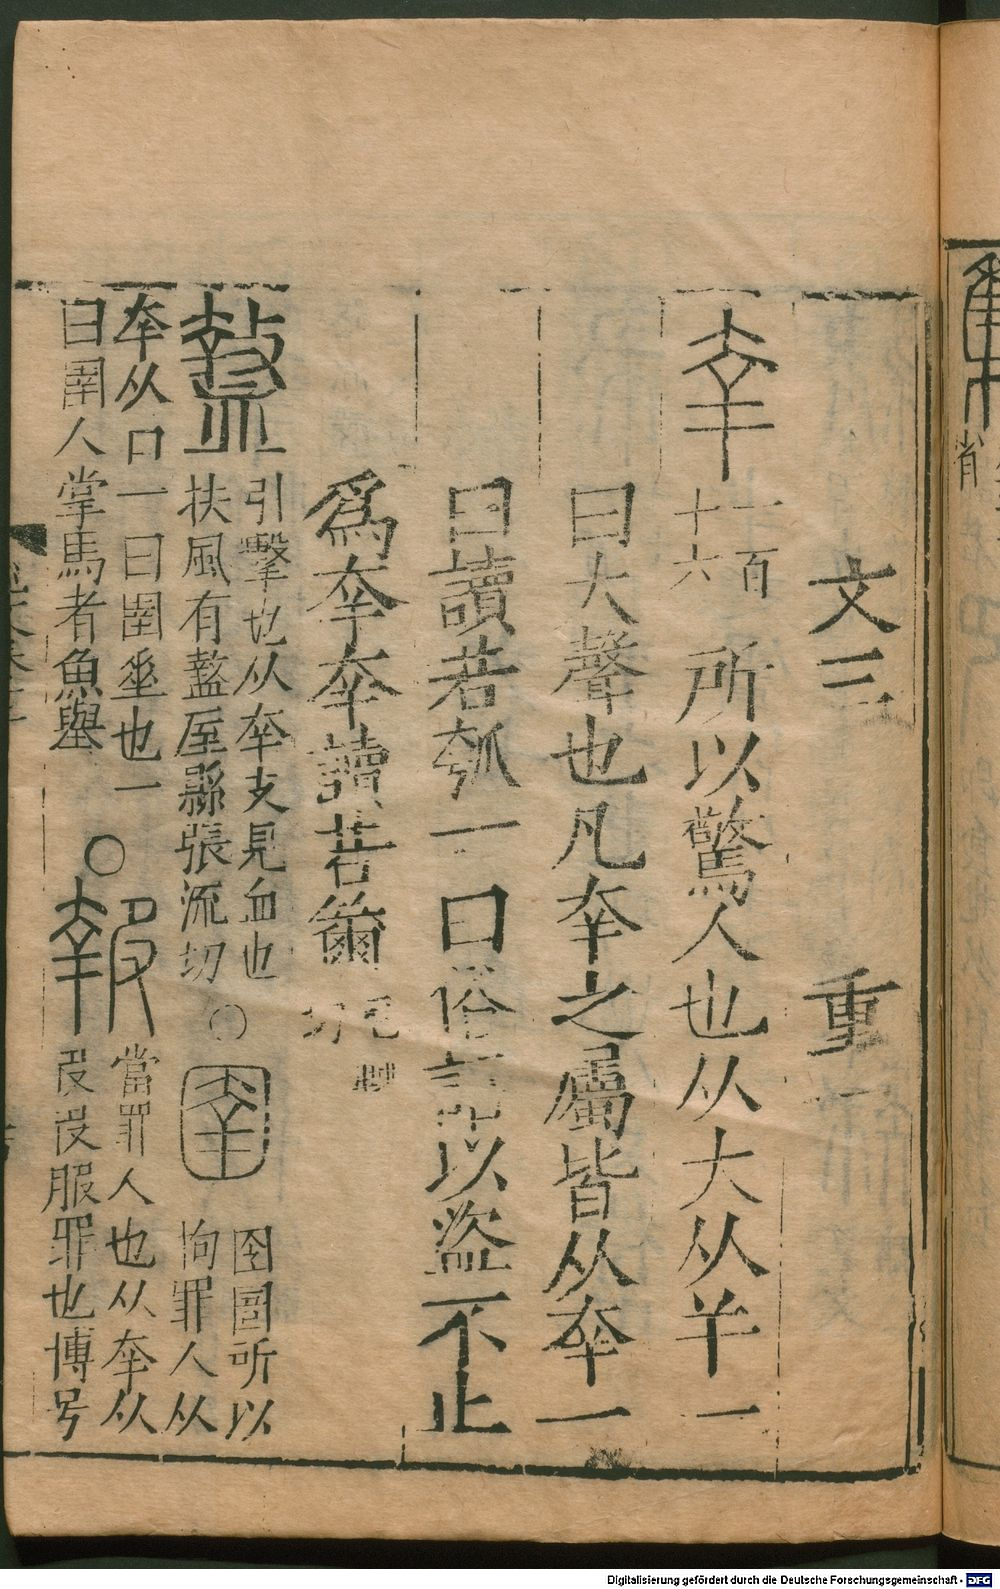 文三　重一
㚔 一百十六 所以驚人也从大从𢆉一
曰大聲也凡㚔之屬皆从㚔一
曰讀若瓠一曰俗語以盜不止
爲㚔㚔讀若籋 尼輒切
盩 引擊也从㚔攴見血也
扶風有盩厔縣張流切
○圉 囹圄所以
拘罪人从
㚔从囗一曰圉垂也一
曰圉人掌馬者魚舉
○報 當罪人也从㚔从
𠬝𠬝服罪也博号
Digitalisierung gefördert durch die Deutsche Forschungsgemeinschaft - DFG